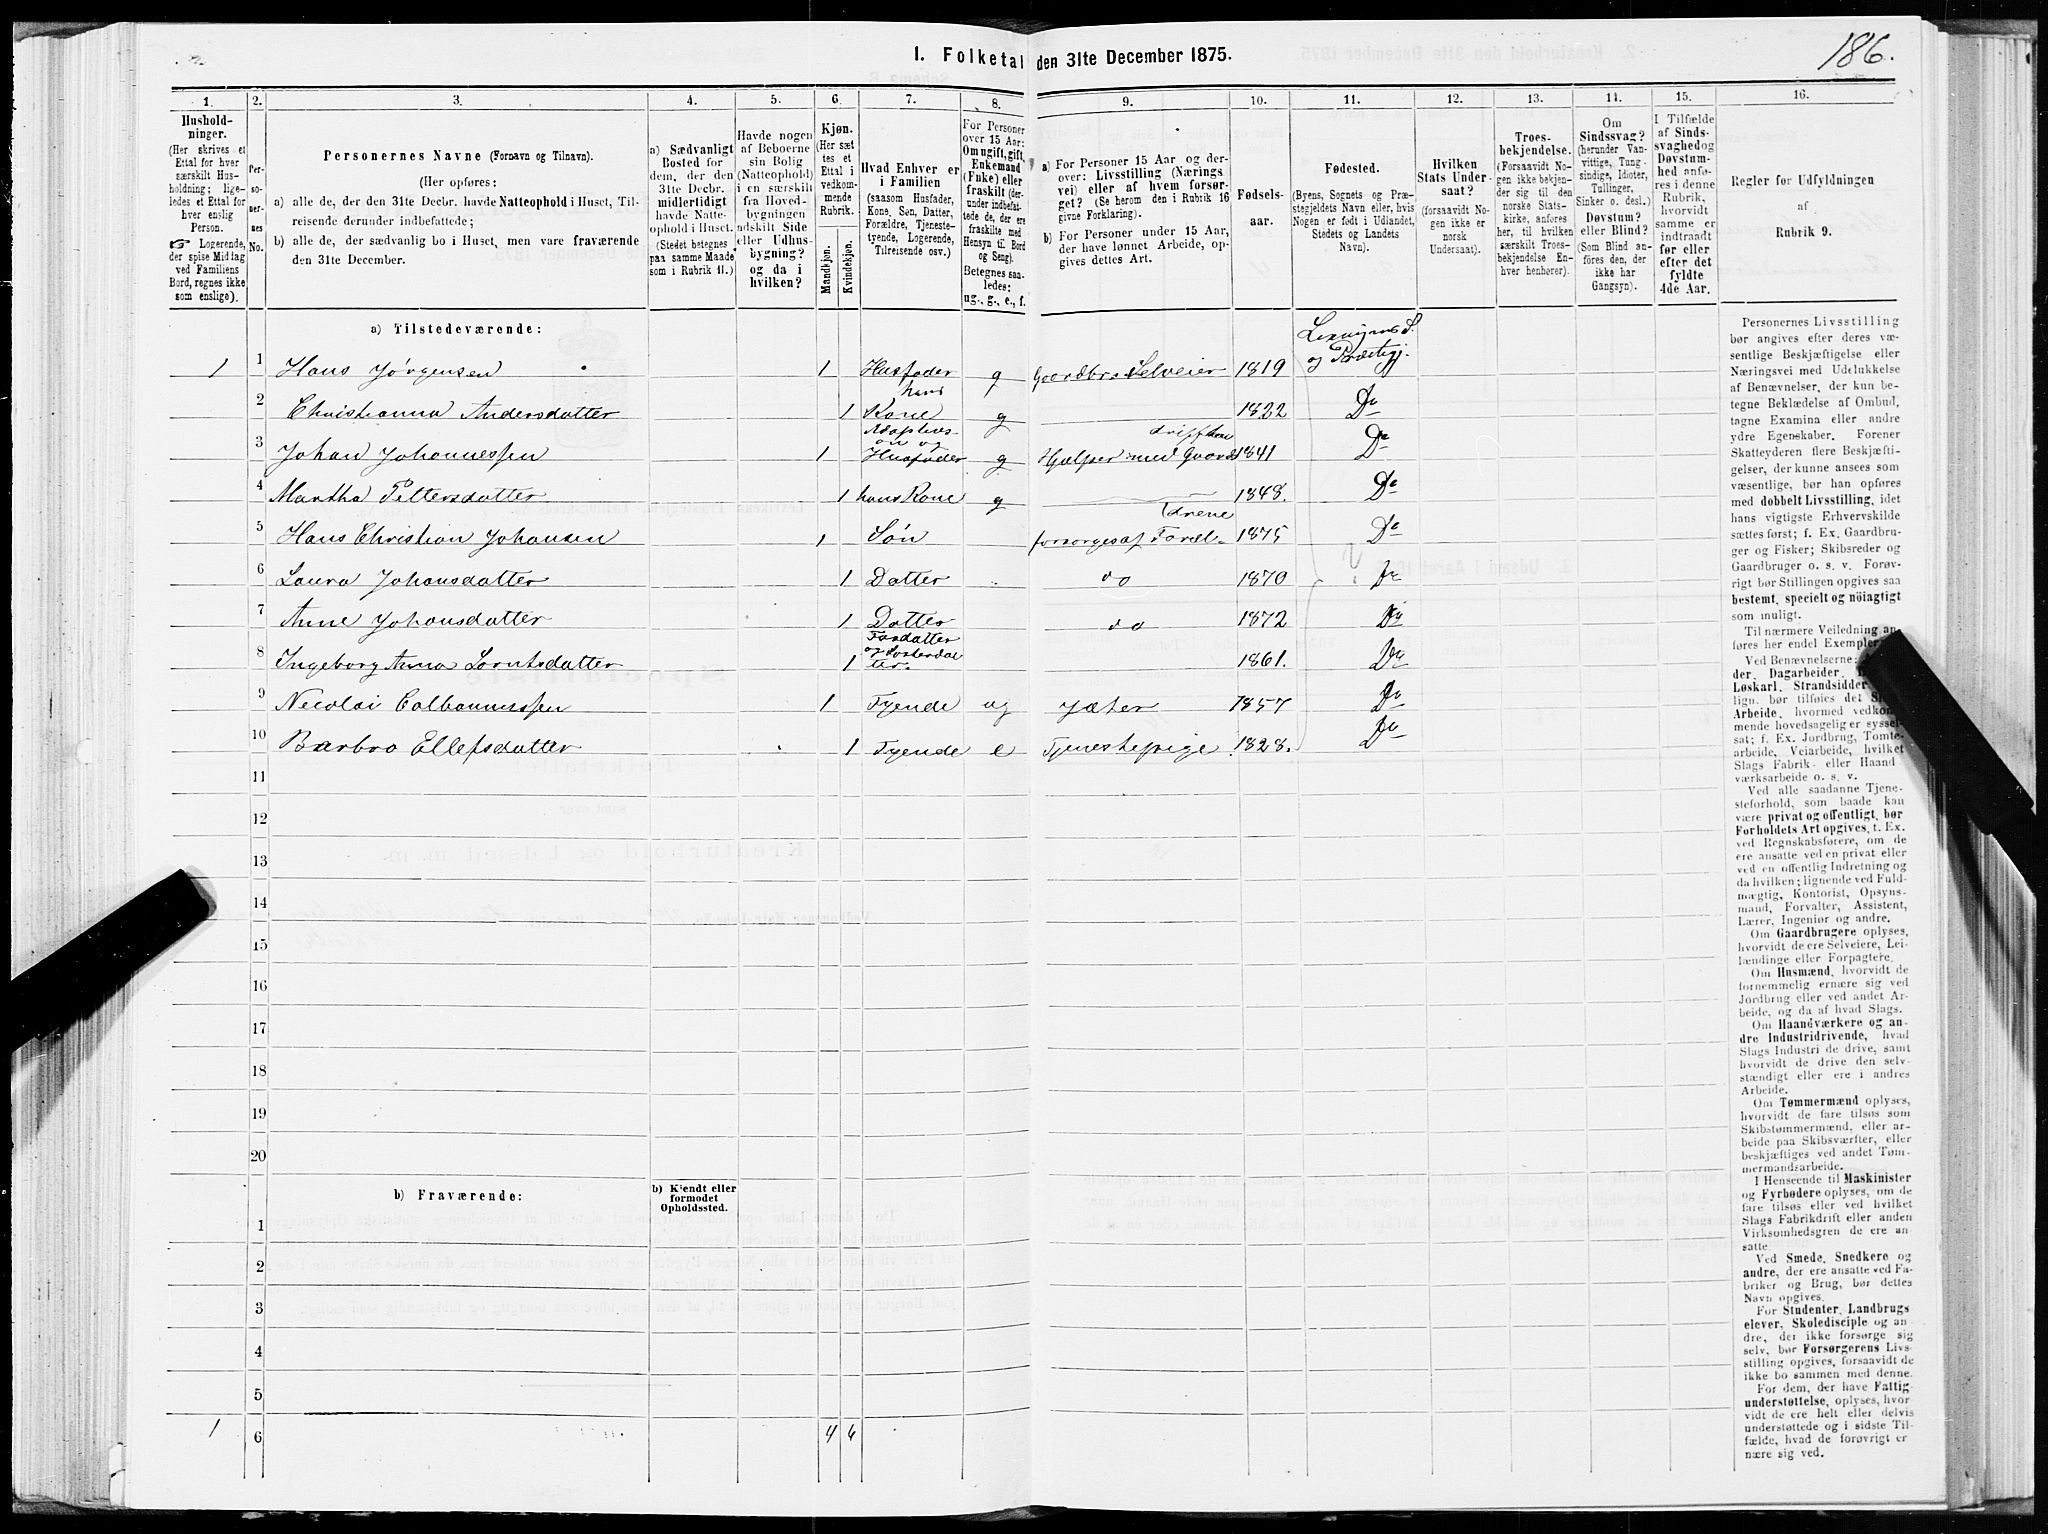 186.
I. Folketal den 31te December 1875.
1.
Hushold-
ninger.
(Her skrives et
Ettal for hver
særskilt Hus-
holdning; lige-
ledes et Ettal for
hver enslig
Person.
☞ Logerende,
der spise Middag
ved Familiens
Bord, regnes ikke
som enslige).
2.
Per-
so-
ner-
nes
No.
3.
Personernes Navne (Fornavn og Tilnavn).
(Her opføres:
a) alle de, der den 31te Decbr. havde Natteophold i Huset, Til-
reisende derunder indbefattede;
b) alle de, der sædvanlig bo i Huset, men vare fraværende
den 31te December.
4.
a) Sædvanligt
Bosted for
dem, der den
31te Decbr.
midlertidigt
havde Natte-
ophold i Huset.
(Stedet betegnes
paa samme Maade
som i Rubrik 11.)
5.
Havde nogen
af Beboerne
sin Bolig
(Natteophold)
i en særskilt
fra Hoved-
bygningen
adskilt Side
eller Udhus-
bygning?
og da i
hvilken?
6.
Kjøn.
(Her sæt
tes et
Ettal i
vedkom-
mende
Rubrik.
Mandkjøn.
Kvindekjøn.
7.
Hvad Enhver er
i Familien
(saasom Husfader,
Kone, Søn, Datter,
Forældre, Tjeneste-
tyende, Logerende,
Tilreisende osv.)
8.
For Personer
over 15 Aar:
Om ugift, gift,
Enkemand
(Enke) eller
fraskilt (der-
under indbefat-
tede de, der ere
fraskilte med
Hensyn til Bord
og Seng).
Betegnes saa-
ledes:
ug., g., e., f.
9.
a) For Personer 15 Aar og der-
over: Livsstilling (Nærings
vei) eller af hvem forsør-
get? (Se herom den i Rubrik 16
givne Forklaring).
b) For Personer under 15 Aar,
der have lønnet Arbeide, op-
gives dettes Art.
10.
Fødsels-
aar.
11.
Fødested.
(Byens, Sognets og Præ-
stegjeldets Navn eller, hvis
Nogen er født i Udlandet,
Stedets og Landets
Navn).
12.
Hvilken
Stats Under-
saat?
(forsaavidt No-
gen ikke er
norsk
Undersaat).
13.
Troes-
bekjendelse.
(Forsaavidt No-
gen ikke bekjen-
der sig til den
norske Stats-
kirke, anføres
her, til hvilken
særskilt Troes-
bekjendelse En-
hver henhører).
14.
Om
Sindssvag?
(herunder Van-
vittige, Tung-
sindige, Idioter,
Tullinger,
Sinker o. desl.)
Døvstum?
eller Blind?
(Som Blind an-
føres den, der
ikke har
Gangsyn).
15.
I Tilfælde
af Sinds-
svaghed og
Døvstum-
hed anfø-
res i denne
Rubrik,
hvorvidt
samme er
indtraadt
før eller
efter det
fyldte
4de Aar.
16.
Regler for Udfyldningen
af
Rubrik 9.
a) Tilstedeværende:
1 1 Hans Jörgensen 1 Husfader g Gaardbr. Selveier 1819 Lexvigens S. og Præstegj.
2 Christianna Andersdatter 1 hans Kone g 1822 Do
3 Johan Johannessen 1 Adoptivsøn og Husfader g Hjælper med Gaardsdriften 1841 Do
4 Martha Pettersdatter 1 hans Kone g 1848. Do
5 Hans Christian Johansen 1 Søn forsørges af Forældrene 1875 Do
6 Laura Johansdatter 1 Datter do 1870 Do
7 Anne Johansdatter 1 Datter do 1872 Do
8 Ingeborg Anna Lorntsdatter 1 1861. Do
9 Nicolai Calhannessen 1 Tyende ug Jæter 1857 Do
10 Barbro Ellefsdatter 1 Tyende e Tjenestepige 1828. Do
11
12
13
14
15
16
17
18
19
20
b) Fraværende:
b) Kjendt eller
formodet
Opholdssted.
1
2
3
4
5
6
1 4 6
Personernes Livsstilling
bør angives efter deres væ-
sentlige Beskjæftigelse eller
Næringsvei med Udelukkelse
af Benævnelser, der kun be-
tegne Beklædelse af Ombud,
tagne Examina eller andre
ydre Egenskaber. Forener
Skatteyderen flere Beskjæfti-
gelser, der kunne ansees som
væsentlige, bør han opføres
med dobbelt Livsstilling, idet
hans vigtigste Erhvervskilde
sættes først; f. Ex. Gaardbru-
ger og Fisker; Skibsreder og
Gaardbruger o. s. v. Forøv-
rigt bør Stillingen opgives saa
bestemt, specielt og nöiagtigt
som muligt.
Til nærmere Veiledning an-
føres her endel Exempler:
Ved Benævnelserne:
der, Dagarbeider,
Løskarl, Strandsidder
lign. bør tilføies det
Arbeide, hvormed vedkom-
mende hovedsagelig er syssel-
sat; f. Ex. Jordbrug, Tomte-
arbeide, Veiarbeide, hvilket
Slags Fabrik- eller Haand
værksarbeide o. s. v.
Ved alle saadanne Tjene-
steforhold, som baade kan
være privat og offentligt, bør
Forholdets Art opgives, t. Ex.
ved Regnskabsførere, om de
ere ansatte ved en privat eller
ved en offentlig Indretning og
da hvilken; lignende ved Fuld-
mægtig, Kontorist, Opsyns-
mand, Forvalter, Assistent,
Lærer, Ingeniør og andre.
Om Gaardbrugere oplyses,
hvorvidt de ere Selveiere, Lei-
lændinge eller Forpagtere.
Om Husmænd, hvorvidt de
fornemmelig ernære sig ved
Jordbrug eller ved andet Ar-
beide, og da af hvad Slags.
Om Haandværkere og an-
dre Industridrivende, hvad
Slags Industri de drive, samt
hvorvidt de drive den selv-
stændigt eller ere i andres
Arbeide.
Om Tømmermænd oplyses,
hvorvidt de fare tilsøs som
Skibstømmermænd, eller ar-
beide paa Skibsværfter, eller
beskjæftiges ved andet Tøm-
mermandsarbeide.
I Henseende til Maskinister
og Fyrbødere oplyses, om de
fare tilsøs eller ved hvilket
Slags Fabrikdrift eller anden
Virksomhedsgren de ere an-
satte.
Ved Smede, Snedkere og
andre, der ere ansatte ved Fa-
briker og Brug, bør dettes
Navn opgives.
For Studenter, Landbrugs
elever, Skoledisciple og an-
dre, der ikke forsørge sig
selv, bør Forsørgerens Livs-
stilling opgives, forsaavidt de
ikke bo sammen med denne.
For dem, der have Fattig-
understøttelse, oplyses, hvor-
vidt de ere helt eller delvis
understøttede og i sidste Til-
fælde, hvad de forøvrigt er
nære sig ved.